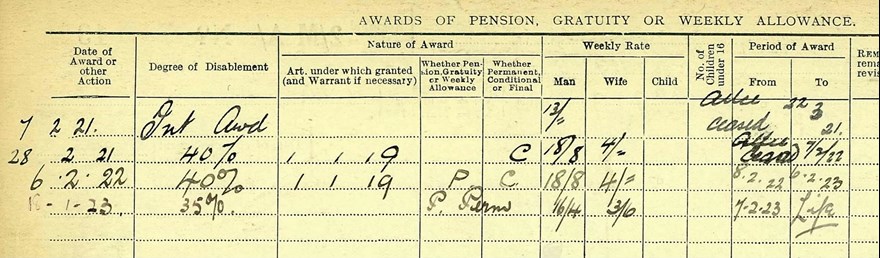 AWARDS OF PENSION, GRATUITY OR WEEKLY ALLOWANCE.
Date of Award or other Action
Degree of Disablement
Nature of Award
Art. under which granted (and Warrant if necessary)
Whether Pension, Gratuity or Weekly Allowance
Whether Permanent, Conditional or Final
Weekly Rate
Man
Wife
Child
No. of Children under 16
Period of Award
From
To
7 2 21. Int Awd 13/= 22 3
ceased 21.
28 2 21 40% 1 1 19 C 18/8 4/= 7/2/22
6 . 2 . 22 40% 1 1 19 P C 18/8 4/= 8.2.22 6.2.23
- 1 - 23 35%. P. Perm 16/4 3/6 7-2-23 Life